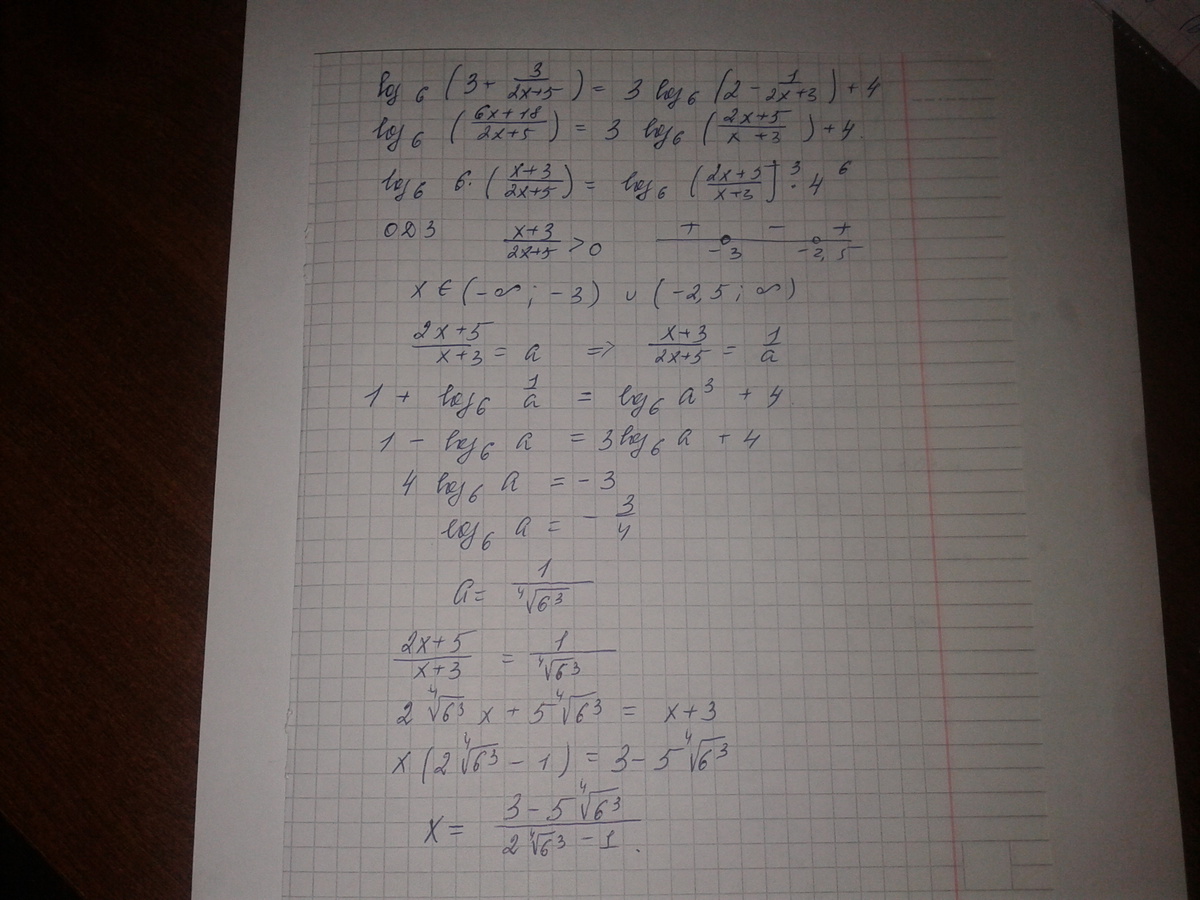 log₆ (3 + 3/(2x+5)) = 3 log₆ (2 - 1/(2x+3)) + 4
log₆ ((6x+18)/(2x+5)) = 3 log₆ ((2x+5)/(x+3)) + 4.
log₆ 6·((x+3)/(2x+5)) = log₆ ((2x+5)/(x+3))³ · 4⁶
ОДЗ (x+3)/(2x+5) > 0 + - + -3 -2,5
x ∈ (-∞; -3) ∪ (-2,5; ∞)
(2x+5)/(x+3) = a => (x+3)/(2x+5) = 1/a
1 + log₆ 1/a = log₆ a³ + 4.
1 - log₆ a = 3 log₆ a + 4
4 log₆ a = -3
log₆ a = -3/4
a = 1/⁴√6³
(2x+5)/(x+3) = 1/⁴√6³
2 ⁴√6³ x + 5 ⁴√6³ = x+3
x (2 ⁴√6³ - 1) = 3 - 5 ⁴√6³
x = (3 - 5 ⁴√6³)/(2 ⁴√6³ - 1).